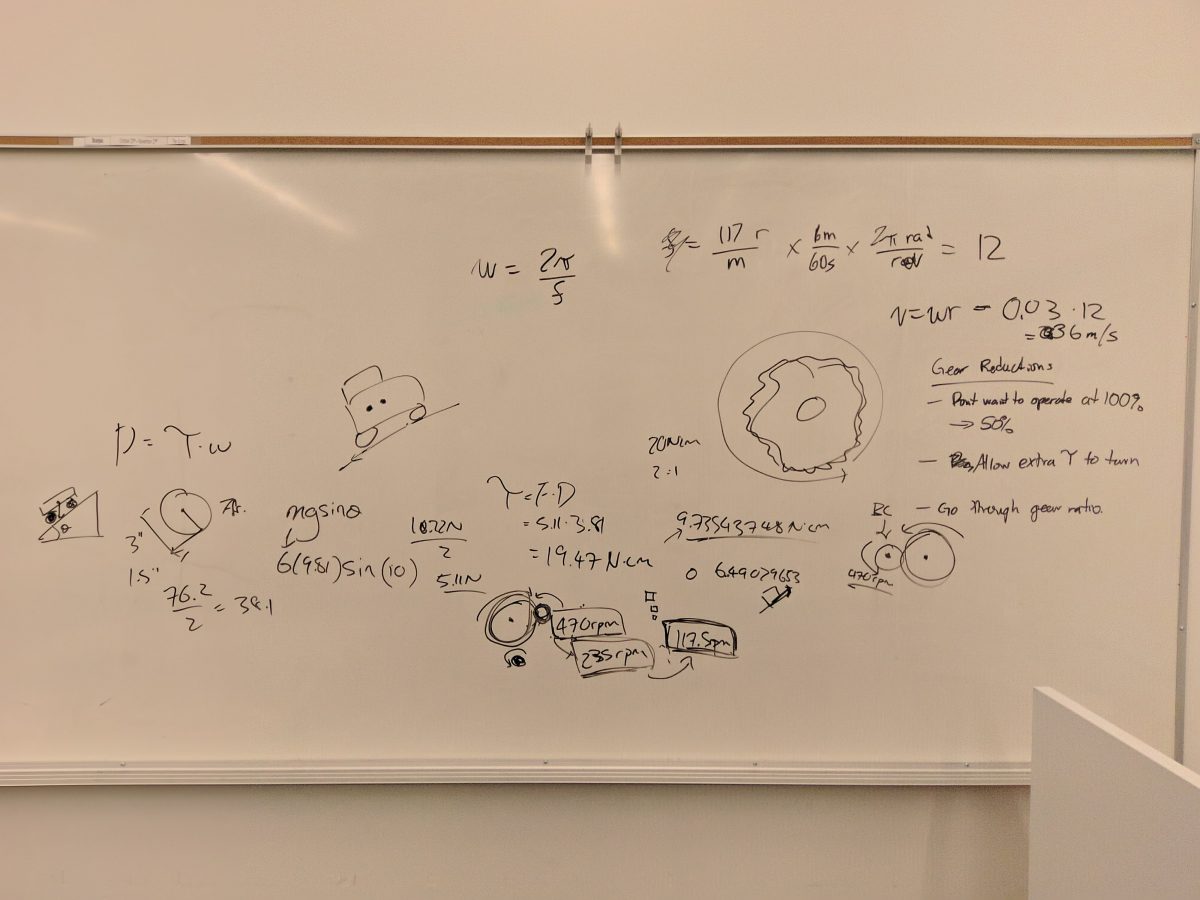 w = 2π/f
= 117 r/m × 6m/60s × 2π rad/rev = 12
v = wr = 0.03 · 12
= 36 m/s
Gear Reductions
- Dont want to operate at 100%
→ 50%
- Allow extra τ to turn
- Go through gear ratio.
P = τ·w
20 N·cm
2:1
3"
1.5"
76.2/2 = 38.1
mgsinθ
6(9.81)sin(10)
10.22N/2
5.11N
τ = F·D
= 5.11·3.81
= 19.47 N·cm
9.73543748 N·cm
0 6.49029653
θ
470rpm
235rpm
117.5rpm
470rpm